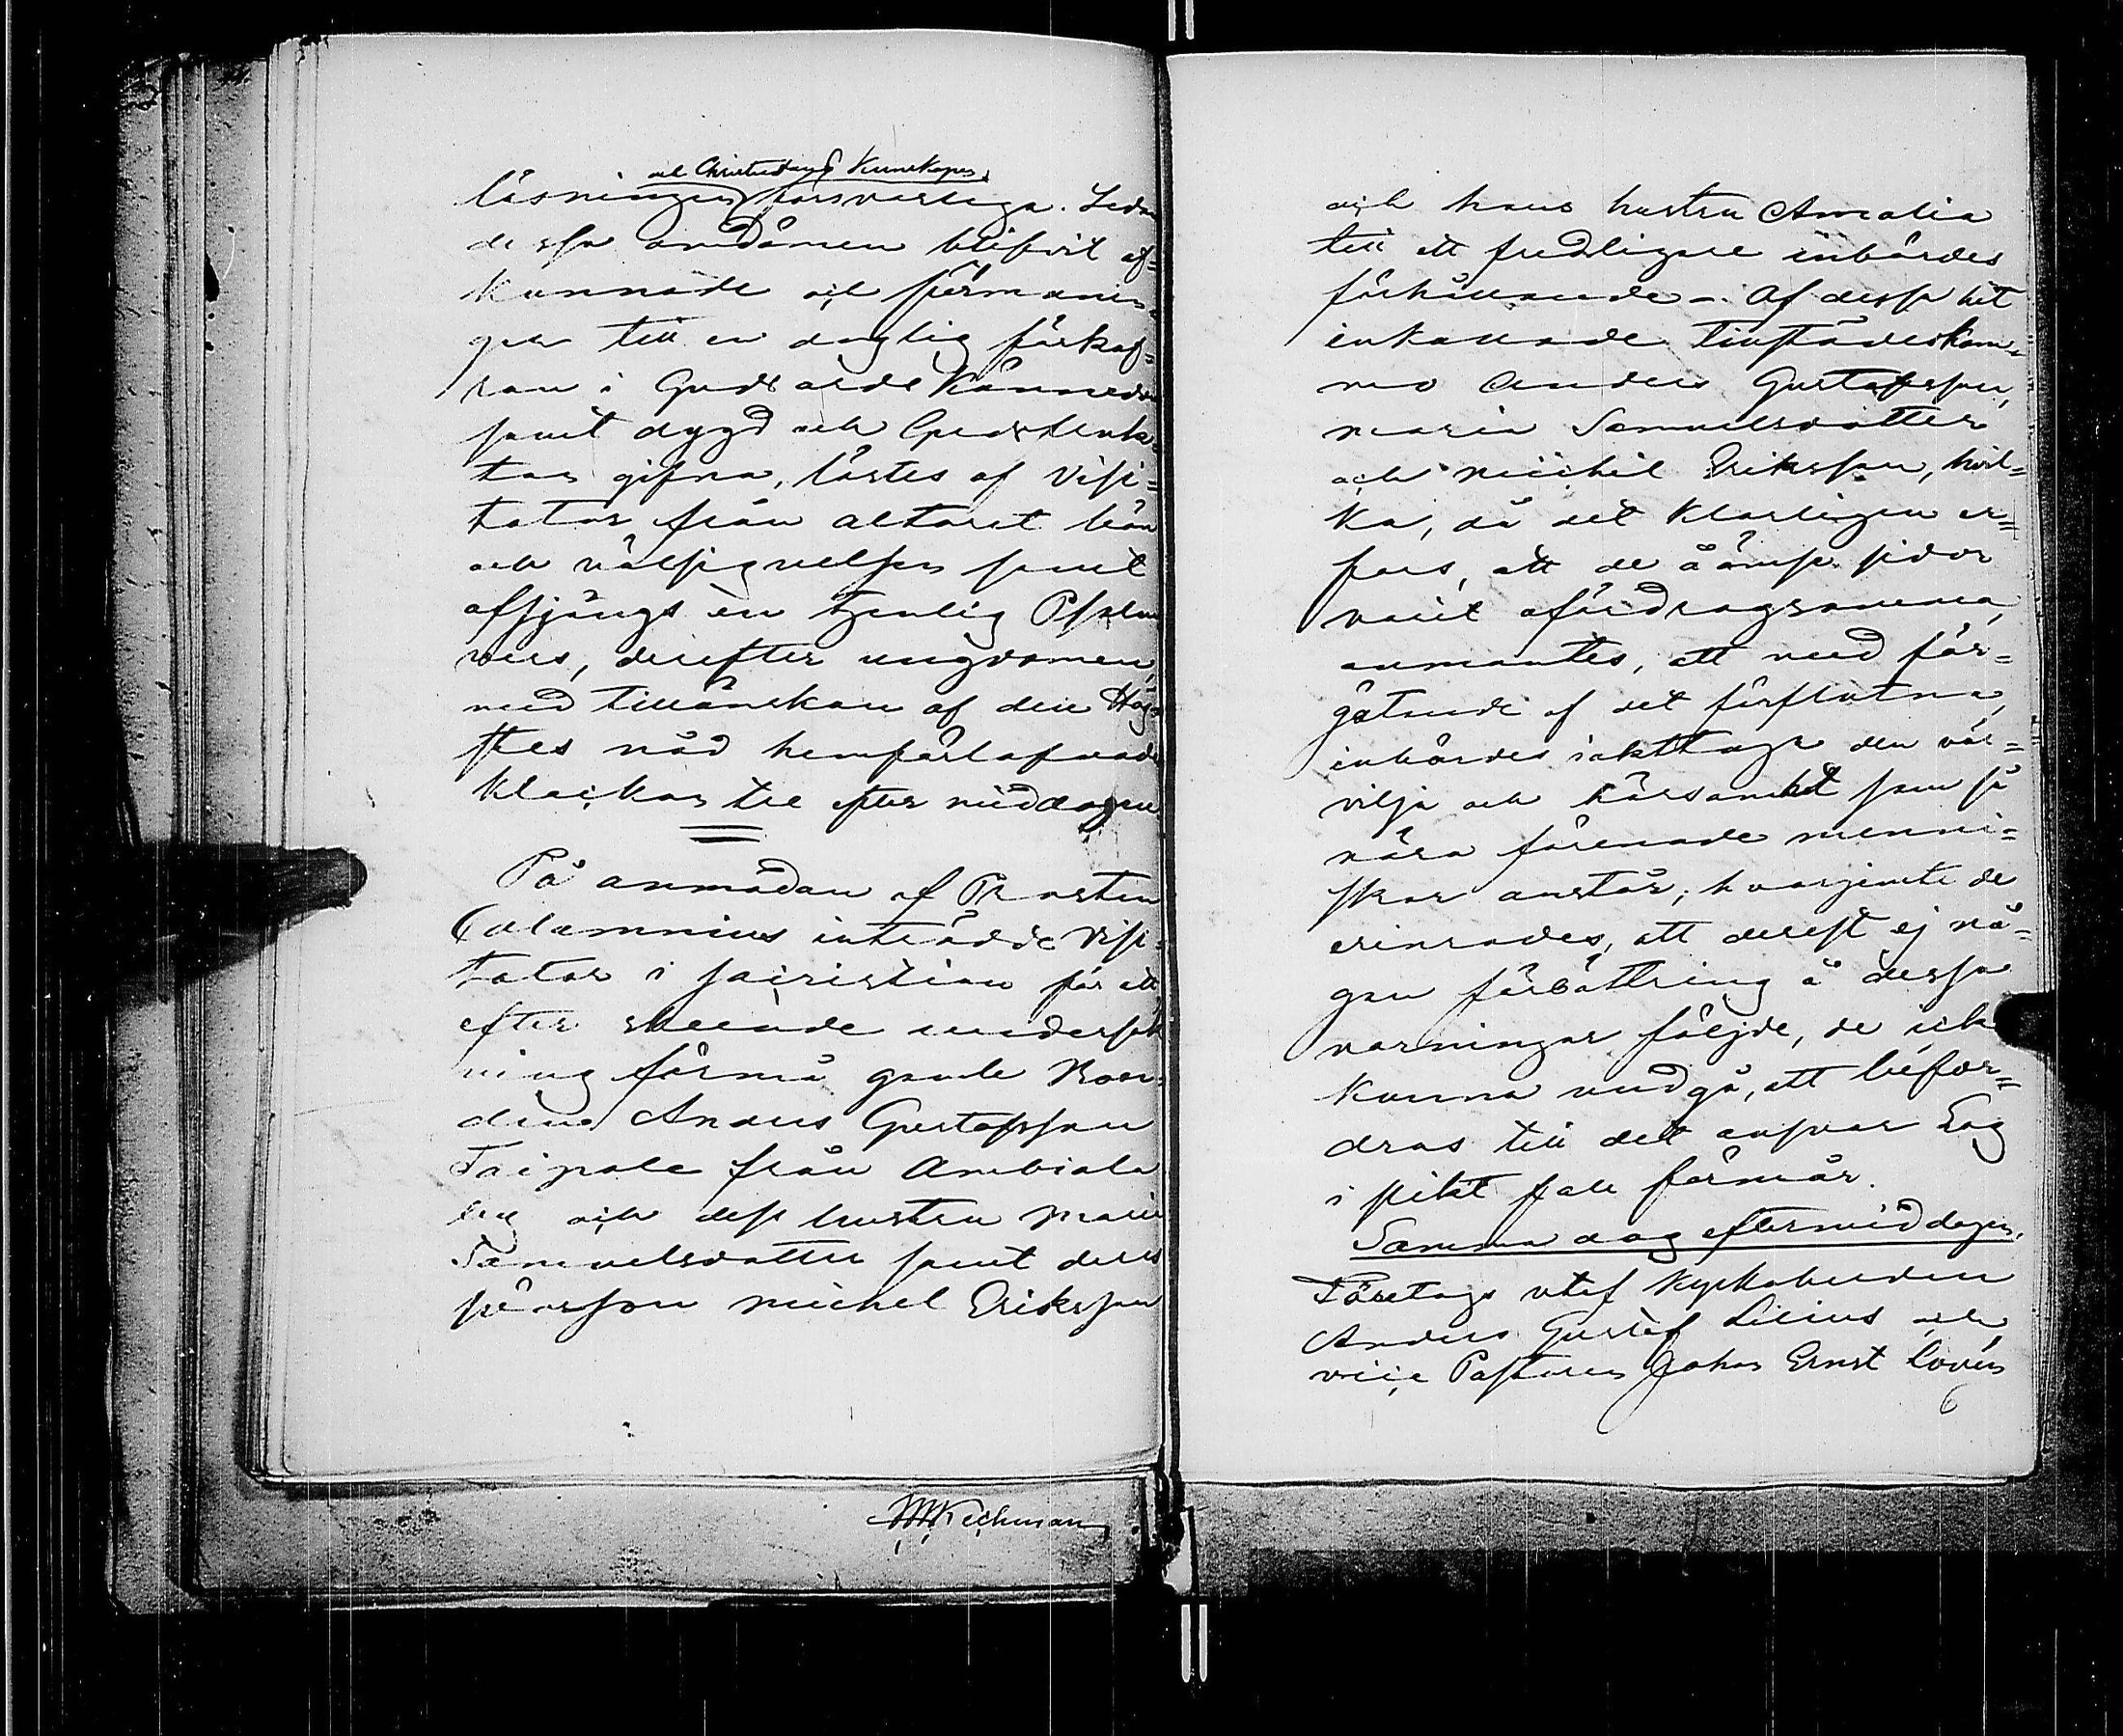 och Christendoms Kunskapen
läsningen försvarliga. Sedan
dessa omdömen blifvit af=
kunnade och förmanin=
gar till en daglig förkof=
ran i Guds ords Kännedom
samt dygd och Gudsfruk=
tan gifna, lästes af Visi=
tator från altaret bön
och välsignelsen samt
afsjöngs en tjenlig Psalm
vers, derefter ungdomen,
med tillönskan af den Hög=
stes nåd hemförlofvades
Klockan tre efter middagen
På anmodan af Prosten
Calamnius inträdde Visi=
tator i sacristian för att
efter skeende undersök
ning förmå gamle Bon=
den Anders Gustafsson
Taipale från Ambiala
by och dess hustru Maria
Samuelsdotter samt deres
son Michel Eriksson
och hans hustru Amalia
till ett fredligare inbördes
förhållande. Af dessa hit
inkallade tillstädeskom=
mo Anders Gustafsson,
Maria Samuelsdotter
och Michel Eriksson, hvil=
ka, då det klarligen er=
fors, att de å ömse sidor
varit ofördragsamma,
anmantes, att med för=
gätande af det förflutna,
inbördes iakttaga den väl=
vilja och hörsamhet som så
nära förenade menni=
skor anstår; hvarjemte de
erinrades, att derest ej nå=
gon förbättring å dessa
varningar följde, de icke
kunna undgå, att befor=
dras till det ansvar Lag
i slikt fall förmår.
Samma dag eftermiddagen.
Företogs utaf Kyrkoherden
Anders Gustaf Lilius och
vice Pastoren Johan Ernst Lovén
6